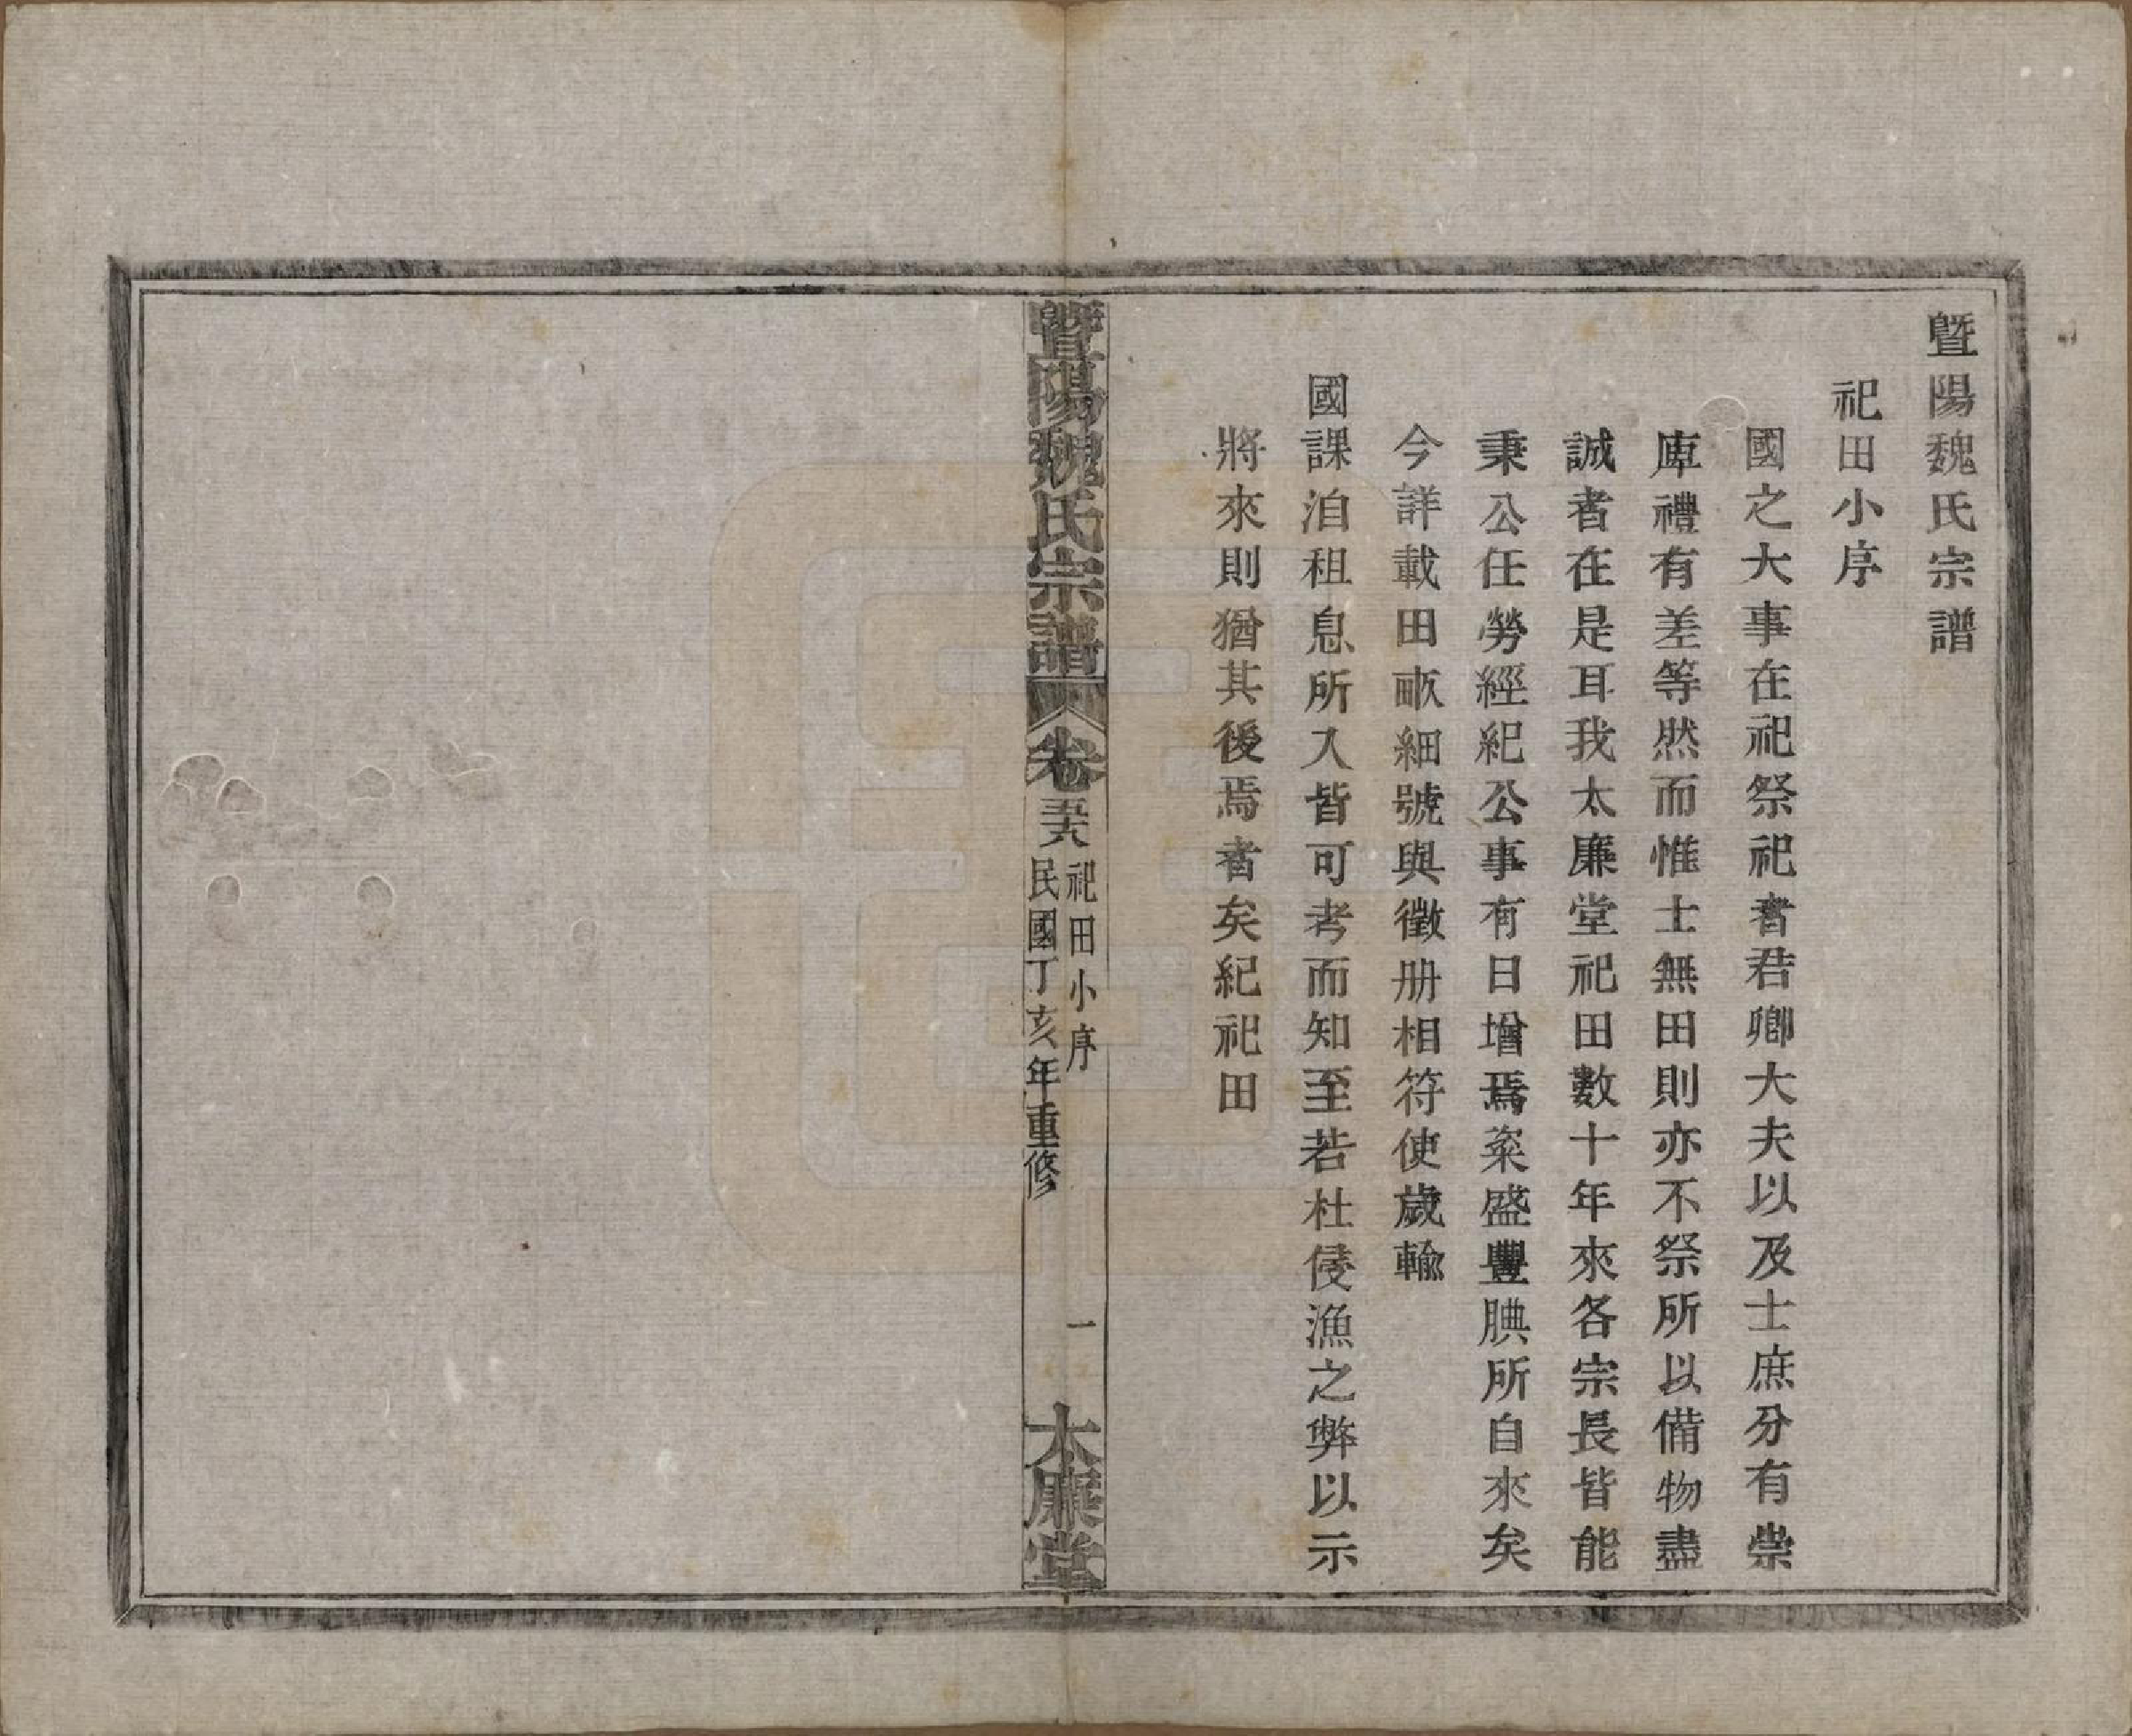 暨陽魏氏宗譜
祀田小序
國之大事在祀祭祀者君卿大夫以及士庶分有崇
庳禮有差等然而惟士無田則亦不祭所以備物盡
誠者在是耳我太廉堂祀田數十年來各宗長皆能
秉公任勞經紀公事有日增焉粢盛豐腆所自來矣
今詳載田畝細號與徵册相符使歲輸
國課洎租息所入皆可考而知至若杜侵漁之弊以示
將來則猶其後焉者矣紀祀田
暨陽魏氏宗譜 卷 五六 祀田小序 一 太廉堂
民國丁亥年重修